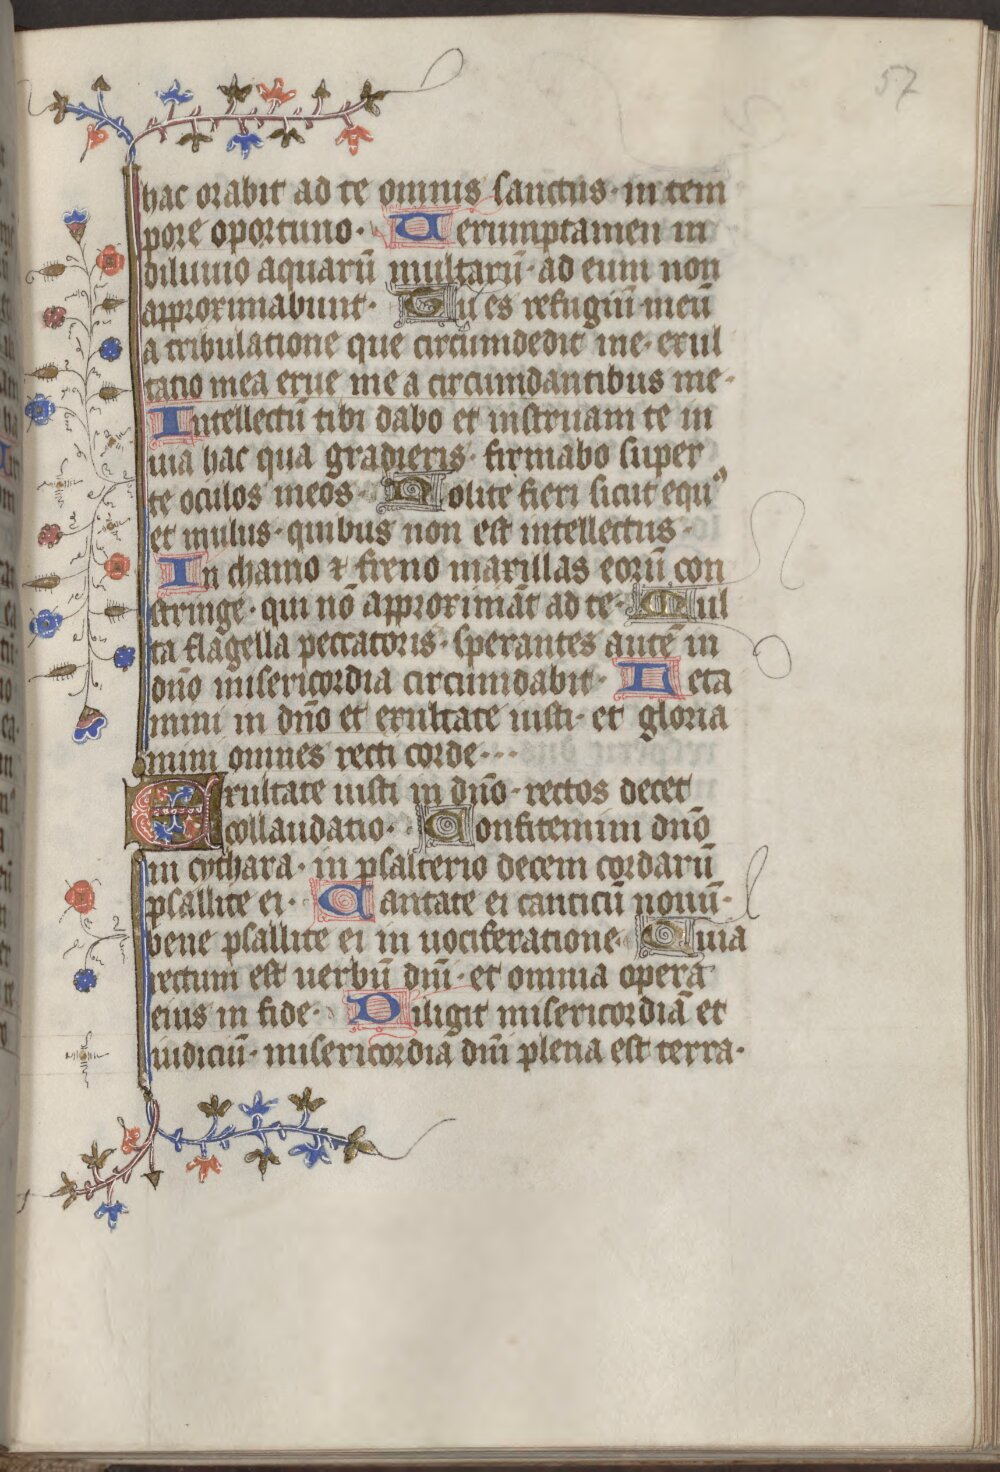 57
hac orabit ad te omnis sanctus · in tem
pore oportuno · Verumptamen in
diluuio aquarū multarū · ad eum non
approximabunt · Tu es refugiū meū
a tribulatione que circumdedit me · exul
tatio mea erue me a circumdantibus me ·
Intellectū tibi dabo et instruam te in
uia hac qua gradieris · firmabo super
te oculos meos · Nolite fieri sicut equꝰ
et mulus · quibus non est intellectus ·
In chamo ⁊ freno maxillas eorū con
stringe · qui nō approximāt ad te · Mul
ta flagella peccatoris · sperantes autē in
dño misericordia circumdabit · Leta
mini in dño et exultate iusti · et gloria
mini omnes recti corde · · ·
Exultate iusti in dño · rectos decet
collaudatio · Confitemini dño
in cythara · in psalterio decem cordarū
psallite ei · Cantate ei canticū nouū ·
bene psallite ei in uociferatione · Quia
rectum est uerbū dñi · et omnia opera
eius in fide · Diligit misericordiā et
iudiciū · misericordia dñi plena est terra ·